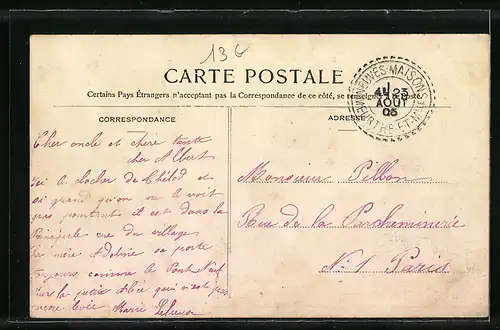 13 G
CARTE POSTALE
Certains Pays Étrangers n'acceptant pas la Correspondance de ce côté, se renseigner à la Poste
NEUVES-MAISONS
23
AOUT
05
MEURTHE-ET-MLLE
CORRESPONDANCE
ADRESSE
Cher oncle et chère tante
cher Albert
ici le clocher de Chélod et
si grand qu'on ou le voit
pas pourtant il est dans la
rue du village
La mère Adeline se porte
toujours comme le Pont Neuf
la petite Alice qui n'est pas
encore levée Marie
Monsieur Pillon
Rue de la Parcheminerie
N. 1 Paris